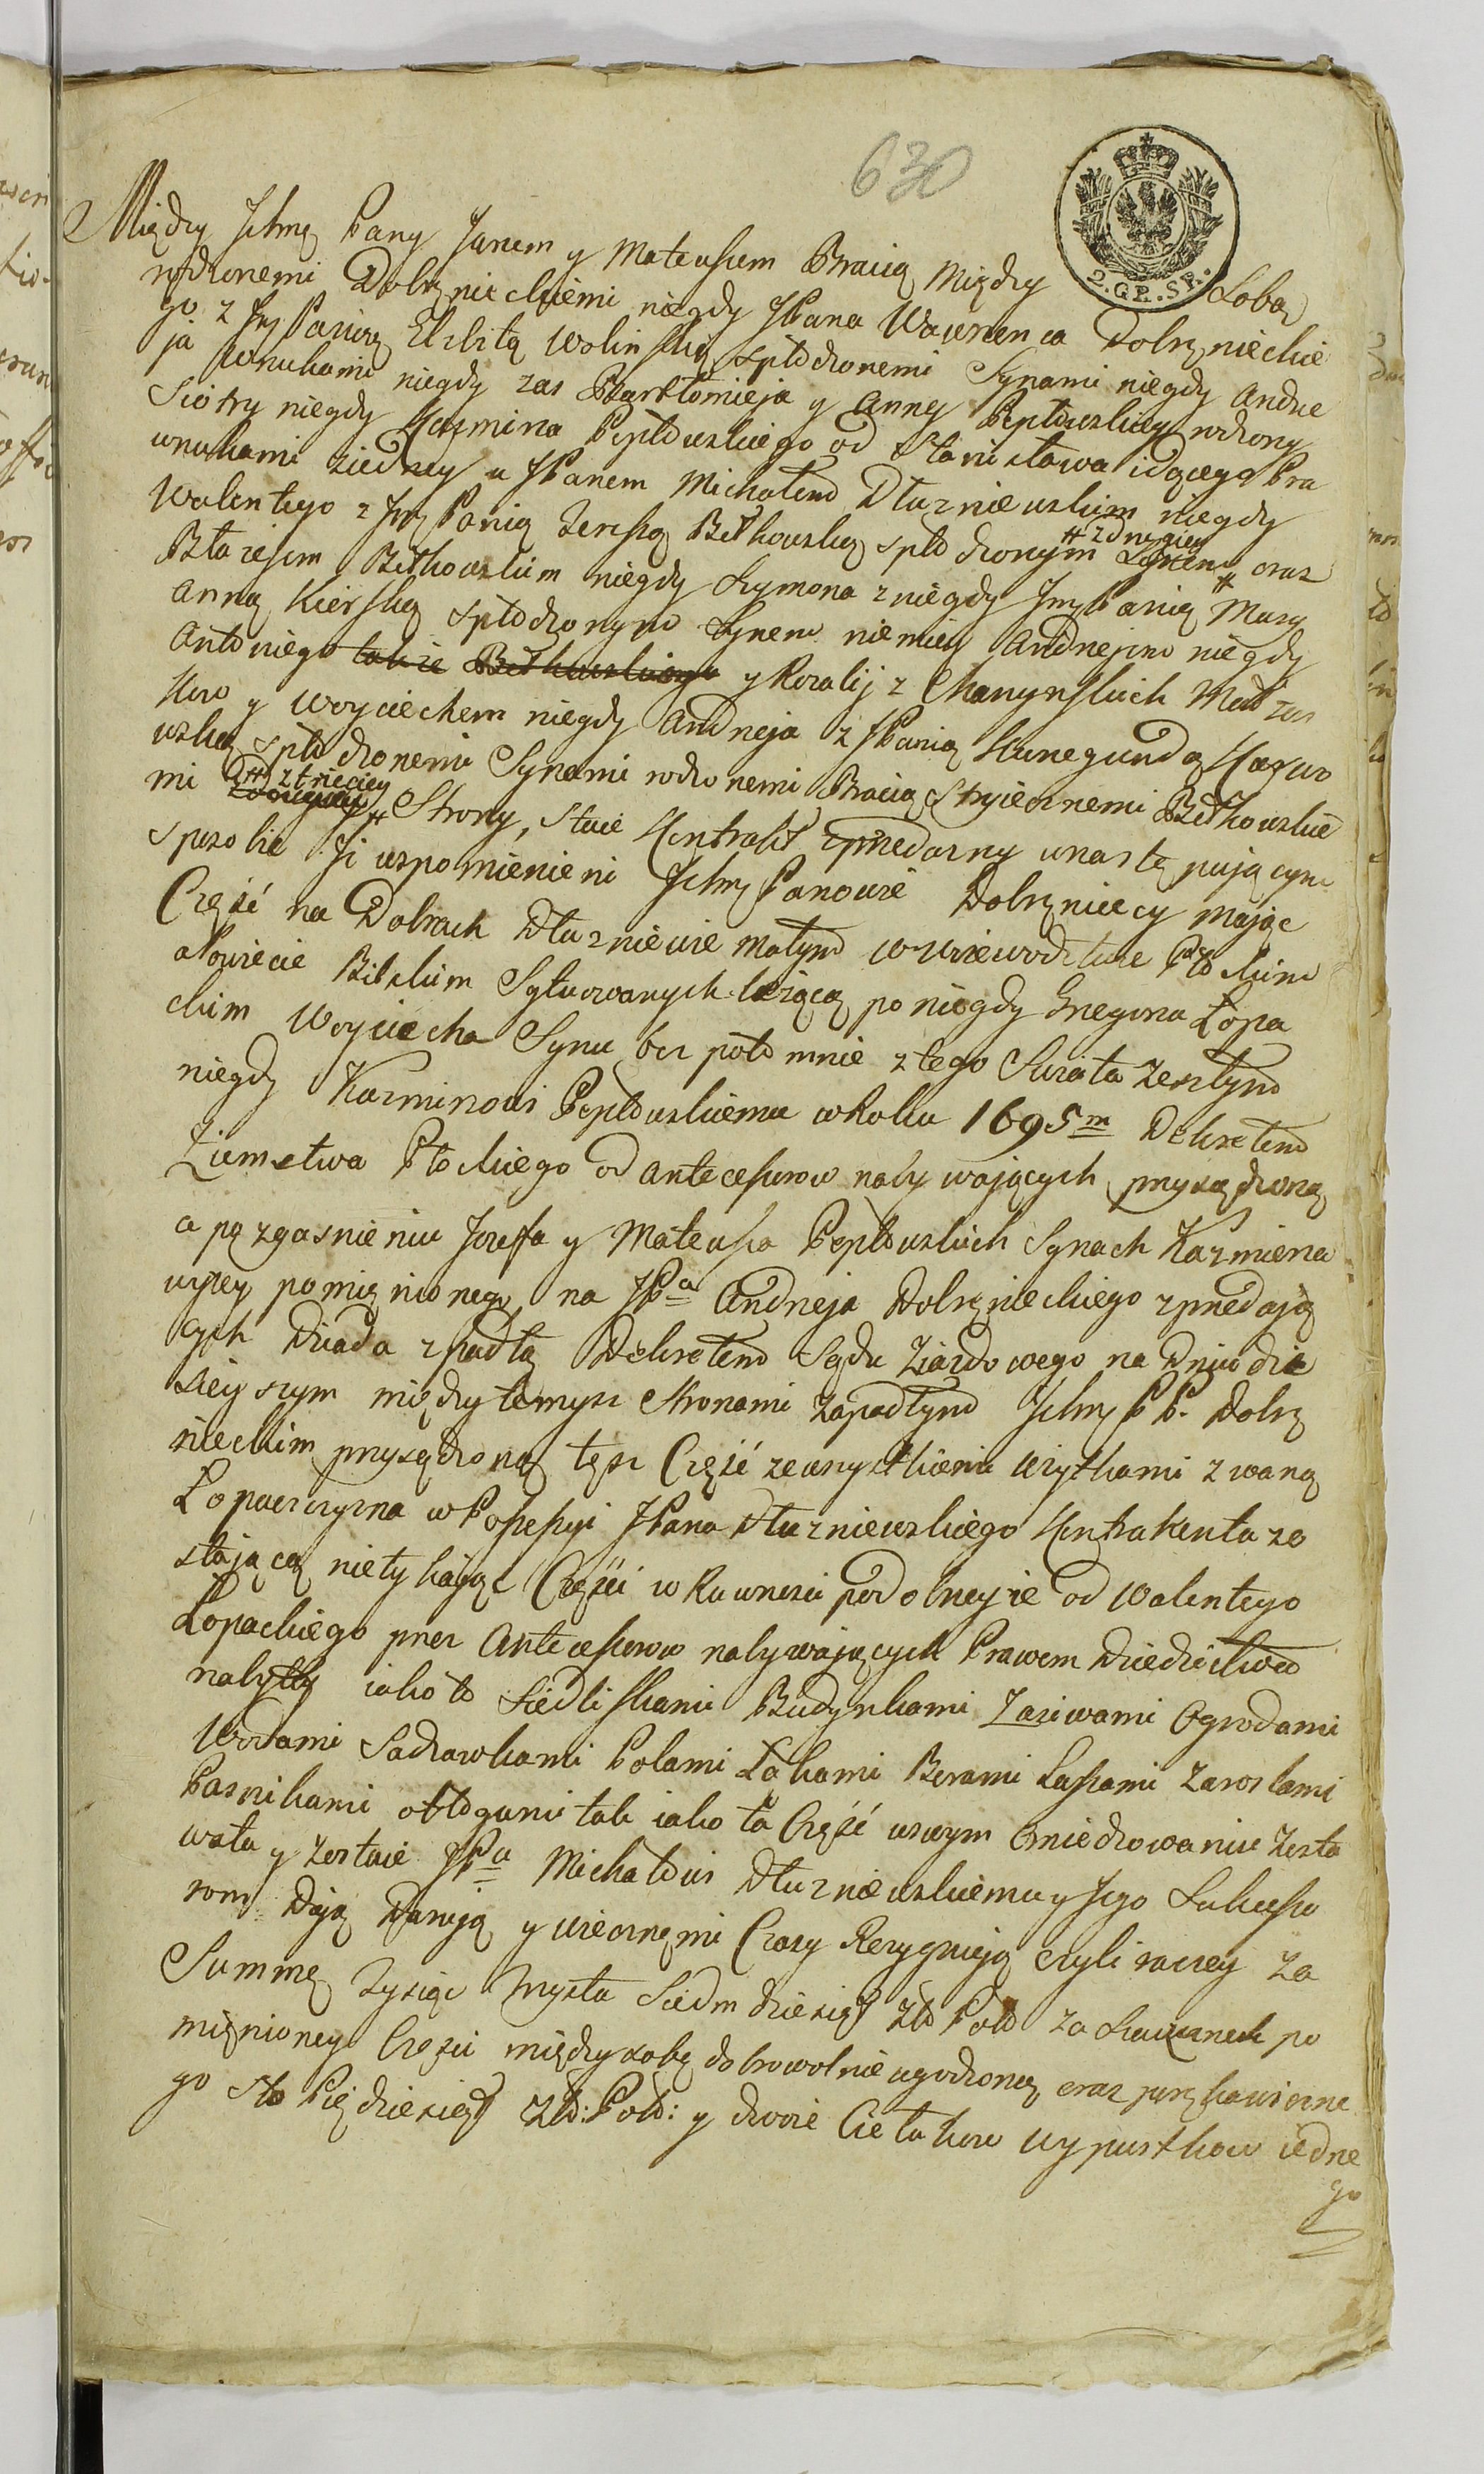 630
2.GR.SR.
Między Ichmę Pany Janem y Mateuszem Bracią Między Sobą
rodzonemi Dobrznieckiemi niegdy JPana Wawrzenca Dobrznieckie
go z Jmę Panią Elzbitą Wolinską spłodzonemi Synami niegdy Andrze
ja Wnukami niegdy zas Bartłomieja y Anny Pepłowskiey rodzony
Siotry niegdy Kazmirza Pepłowskiego od Stanisława idącego Pra
wnukami ziedney a JPanem Michałem Dłuzniewskim niegdy
Walentego z Jmę Panią Teresą Bętkowską spłodzonym Synem # z drugiey # oraz
Błazejem Bętkowskim niegdy Szymona z niegdy Jmę Panią Mary
Anną Kierską spłodzonym Synem niemniey Andrzejem niegdy
Antoniego także Bętkowskiego y Rozalij z Charzynskich Małzon
kow y Woyciechem niegdy Andrzeja z JPanią Kunegundą
wską spłodzonemi Synami rodzonemi Bracią Stryiecznemi Bętkowskie
mi # z trzeciey # Strony, Staie Kontrakt zprzedarny wnastępującym
sposobie Ji wspomnieni Ichmę Panowie Dobrznieccy mając
Część na Dobrach Dłuzniewie Małym w Woiewodztwie Płockim
a Powiecie Bilskim Sytuowanych lezącą po niegdy Grzegorzu Łopa
ckim Woyciecha Synu bez potomnie z tego Swiata zeszłym
niegdy Kazmirzowi Pepłowskiemu w Roku 1695m Dekretem
Ziemstwa Płockiego od Antecessorow nabywających przysądzoną
a po zgasnieniu Jozeffa y Mateusza Pepłowskich Synach Kazmierza
wyzey pomięnionego na JPa Andrzeja Dobrznieckiego zprzedają
cych Dziada spadłą Dekretem Sądu Ziazdowego na Dniu dzi
sieyszym między temysz Stronami zapadłym Ichmę PP. Dobrz
nieckim przysądzoną tęsz Część zewszystkiemi Uzytkami zwaną
Łopacczyzna w Possessyi JPana Dłuzniewskiego Kontrahenta zo
stającą nietykając Części w Rownosci podobneyze od Walentego
Łopackiego przez Antecessorow nabywających Prawem Dziedzictwa
nabyty iako to Siedliskami Budynkami Zasiwami Ogrodami
Wodami Sadzawkami Polami Łąkami Borami Lassami Zaroslami
Pasnikami obłogami tak iako ta Część wswym Omiedzowaniu Zosta
wała y zostaie JPu Michałowi Dłuzniewskiemu y Jego Sukcesso
rom Dają Darują y wiecznemi Czasy Rezygnują czyli raczey za
Summę Tysiąc Trzysta Siedmdziesiąt Zło Pols Za Szacunek po
mięnioney Części między sobą dobrowolnie ugodzoney oraz
go sto Pięcdziesiąt Zło: Pols: y dwoie Cielakow wypustkow iedne
go